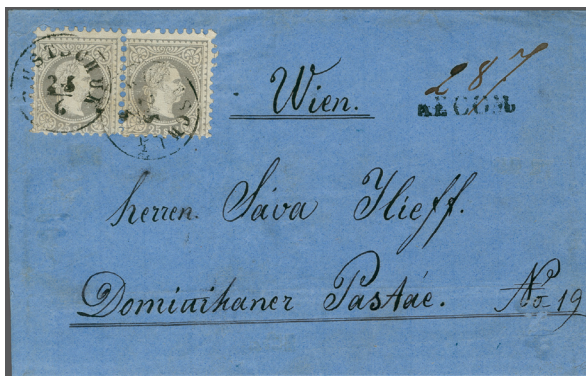 RUSTSCHUK
25
6
25
25
287
RECOM.
Wien.
herren. Sáva Ilieff.
Dominikaner Pastáe. No 19